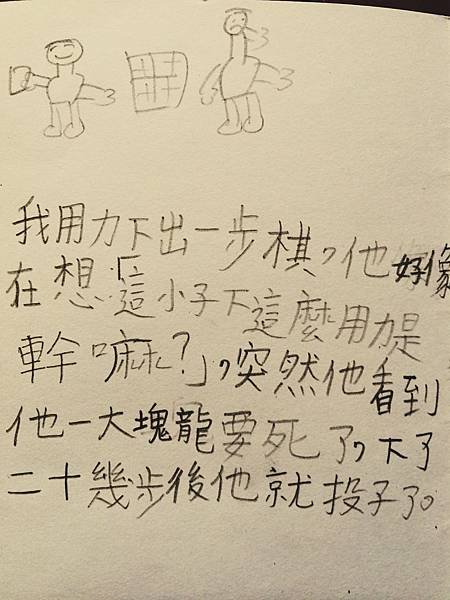 我用力下出一步棋,他好像
在想「這小子下這麼用力是
幹嘛?」,突然他看到
他一大塊龍要死了,下了
二十幾步後他就投子了。